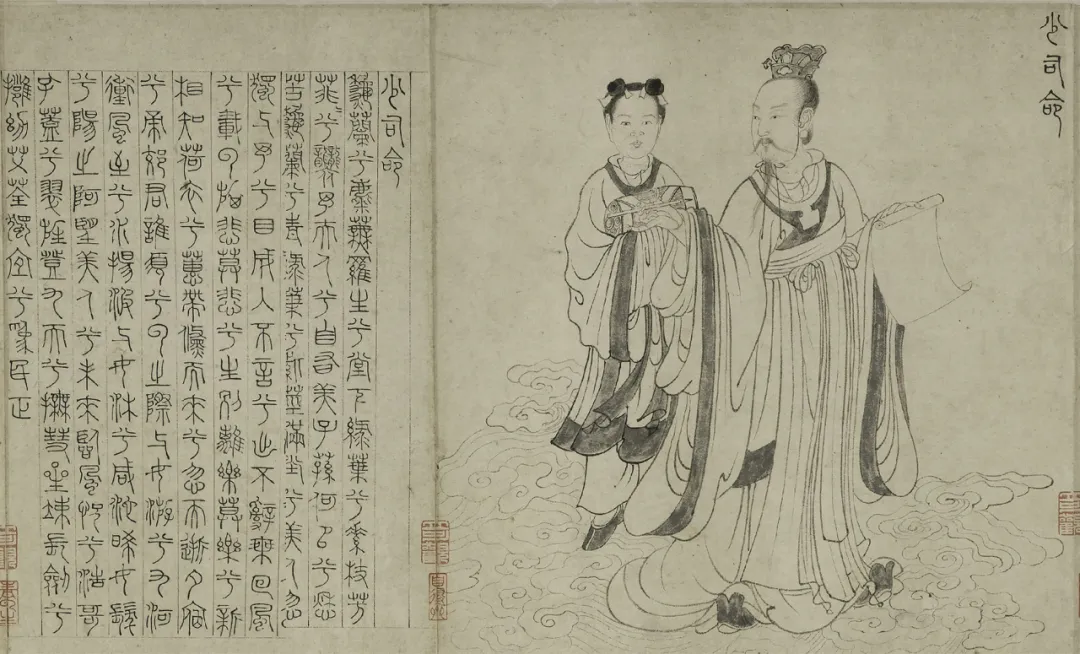 少司命
少司命
秋蘭兮麋蕪羅生兮堂下綠葉兮素枝芳
菲〻兮襲予夫人兮自有美子蓀何以兮愁
苦秋蘭兮青綠葉兮紫莖滿堂兮美人忽
獨与予兮目成入不言兮出不辭乘回風
兮載云旗悲莫悲兮生別離樂莫樂兮新
相知荷衣兮蕙帶儵而來兮忽而逝夕宿
兮帝郊君誰須兮云之際与女游兮九河
衝風至兮水揚波与女沐兮咸池晞女髮
兮陽之阿望美人兮未來臨風怳兮浩哥
孔蓋兮翠旌登九天兮撫彗星竦長劍兮
擁幼艾荃獨宜兮為民正